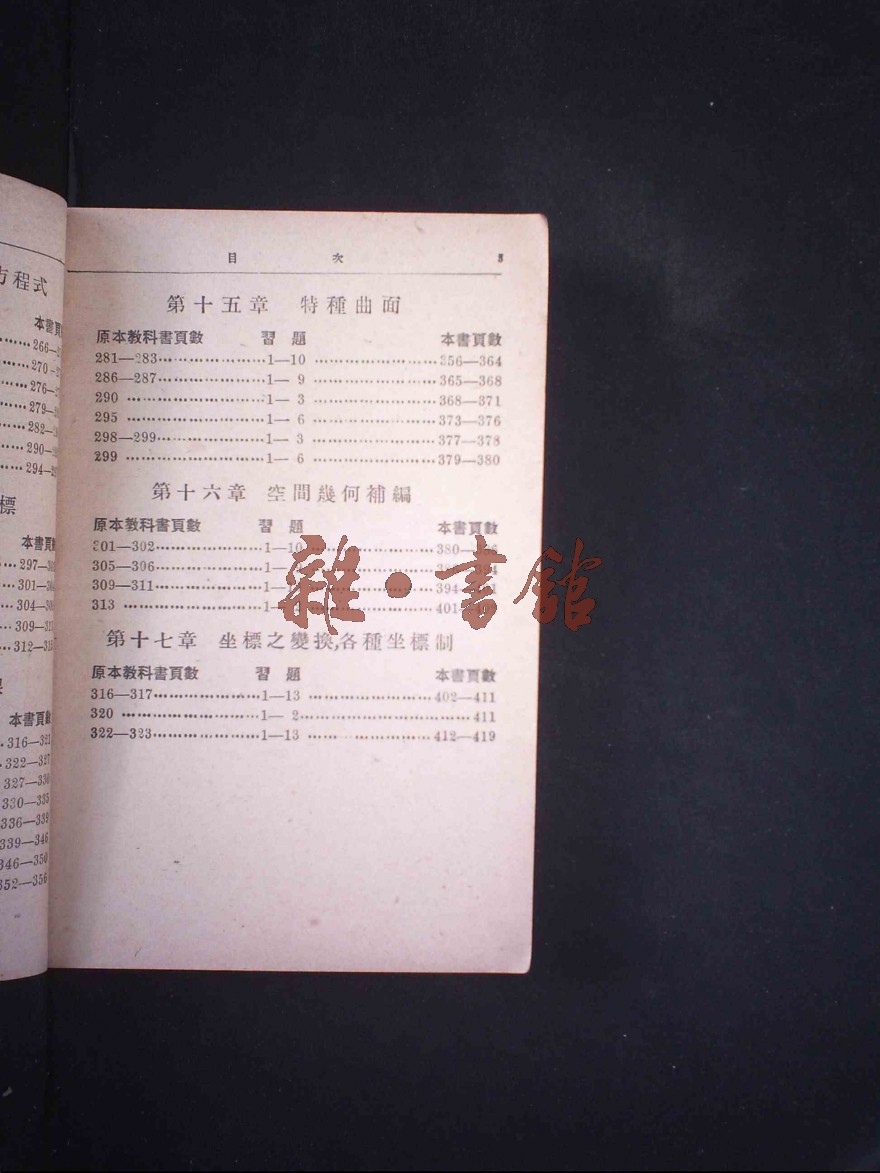 方程式
本書頁
266—
270—
276—
279—
282—
290—
294—
標
本書頁
297—
301—
304—
309—
312—
本書頁數
316—321
322—327
327—330
330—335
336—339
339—346
346—350
352—356
目 次 5
第十五章 特種曲面
原本教科書頁數 習 題 本書頁數
281—283……………………1—10……………………356—364
286—287……………………1— 9……………………365—368
290……………………1— 3……………………368—371
295……………………1— 6……………………373—376
298—299……………………1— 3……………………377—378
299……………………1— 6……………………379—380
第十六章 空間幾何補編
原本教科書頁數 習 題 本書頁數
301—302……………………1—10……………………380—
305—396……………………1—
309—311……………………1— 394—
313……………………1— 401—
雜·書館
第十七章 坐標之變換,各種坐標制
原本教科書頁數 習 題 本書頁數
316—317……………………1—13……………………402—411
320……………………1— 2……………………411
322—323……………………1—13……………………412—419